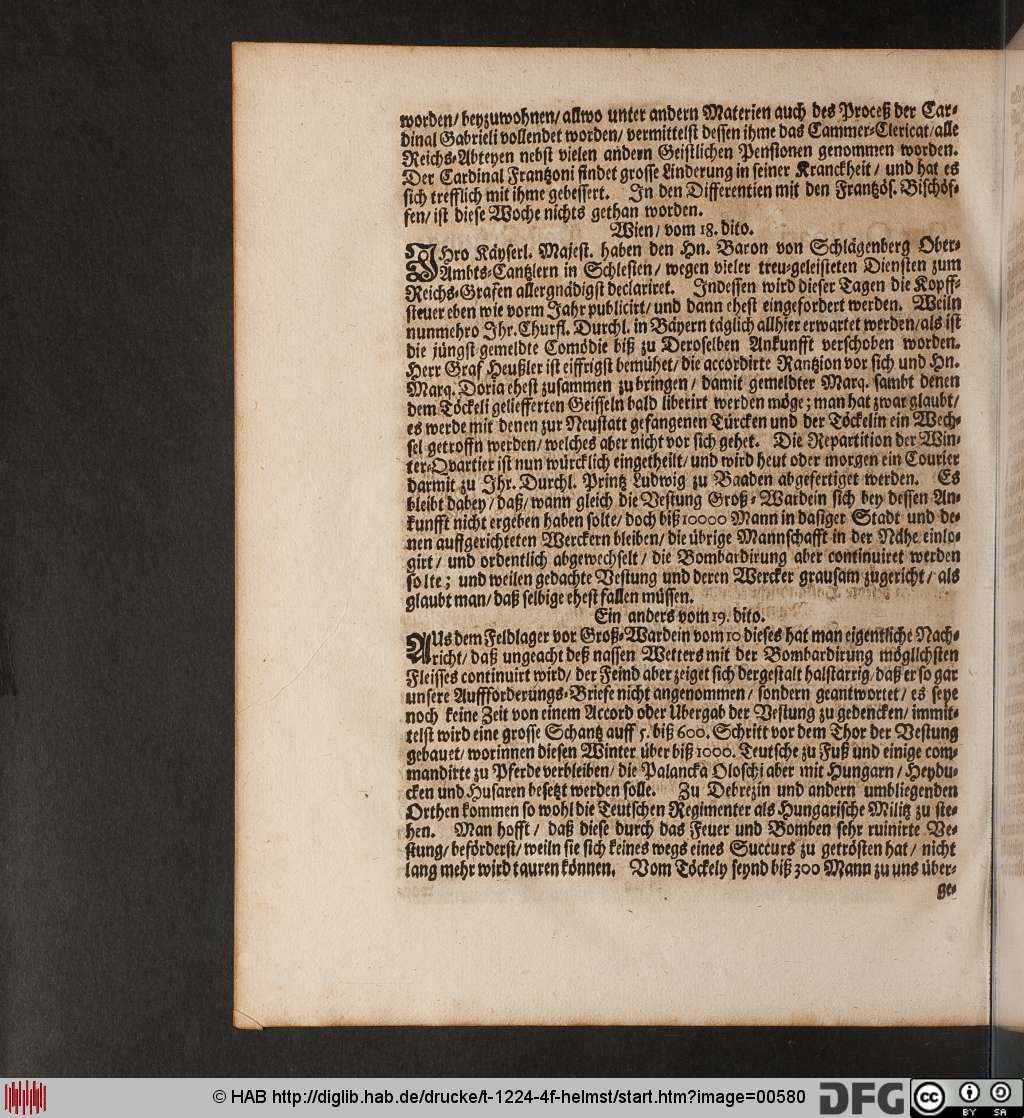 worden/ beyzuwohnen/ allwo unter andern Materien auch des Proceß der Car-
dinal Gabrieli vollendet worden/ vermittelst dessen ihme das Cammer-Clericat/alle
Reichs-Abteyen nebst vielen andern Geistlichen Pensionen genommen worden.
Der Cardinal Frantzoni findet grosse Linderung in seiner Kranckheit/ und hat es
sich trefflich mit ihme gebessert. In den Differentien mit den Frantzös. Bischöf-
fen/ ist diese Woche nichts gethan worden.
Wien/ vom 18. dito.
IHro Käyserl. Majest. haben den Hn. Baron von Schlägenberg Ober-
Ambts-Cantzlern in Schlesien/ wegen vieler treu-geleisteten Diensten zum
Reichs-Grafen allergnädigst declariret. Indessen wird dieser Tagen die Kopff-
steuer eben wie vorm Jahr publicirt/ und dann ehest eingefordert werden. Weiln
nunmehro Ihr. Churfl. Durchl. in Bäyern täglich allhier erwartet werden/als ist
die jüngst gemeldte Comödie biß zu Deroselben Ankunfft verschoben worden.
Herr Graf Heußler ist eiffrigst bemühet/ die accordirte Rantzion vor sich und Hn.
Marq. Doria ehest zusammen zu bringen/ damit gemeldter Marq. sambt denen
dem Töckeli geliefferten Geisseln bald liberirt werden möge; man hat zwar glaubt/
es werde mit denen zur Neustatt gefangenen Türcken und der Töckelin ein Wech-
sel getroffn werden/ welches aber nicht vor sich gehet. Die Repartition der Win-
ter-Qvartier ist nun würcklich eingetheilt/ und wird heut oder morgen ein Courier
darmit zu Ihr. Durchl. Printz Ludwig zu Baaden abgefertiget werden. Es
bleibt dabey/ daß/ wann gleich die Vestung Groß-Wardein sich bey dessen An-
kunfft nicht ergeben haben solte/ doch biß 10000 Mann in dasiger Stadt und de-
nen auffgerichteten Werckern bleiben/ die übrige Mannschafft in der Nähe einlo-
girt/ und ordentlich abgewechselt/ die Bombardirung aber continuiret werden
solte; und weilen gedachte Vestung und deren Wercker grausam zugericht/ als
glaubt man/ daß selbige ehest fallen müssen.
Ein anders vom 19. dito.
AUs dem Feldlager vor Groß-Wardein vom 10 dieses hat man eigentliche Nach-
richt/ daß ungeacht deß nassen Wetters mit der Bombardirung möglichsten
Fleisses continuirt wird/ der Feind aber zeiget sich dergestalt halstarrig/ daß er so gar
unsere Auffforderungs-Briefe nicht angenommen/ sondern geantwortet/ es seye
noch keine Zeit von einem Accord oder Ubergab der Vestung zu gedencken/ immit-
telst wird eine grosse Schantz auff 5. biß 600. Schritt vor dem Thor der Vestung
gebauet/ worinnen diesen Winter über biß 1000. Teutsche zu Fuß und einige com-
mandirte zu Pferde verbleiben/ die Palancka Oloschi aber mit Hungarn/ Heydu-
cken und Husaren besetzt werden solle. Zu Debrezin und andern umbliegenden
Orthen kommen so wohl die Teutschen Regimenter als Hungarische Militz zu ste-
hen. Man hofft/ daß diese durch das Feuer und Bomben sehr ruinirte Ve-
stung/ beförderst/ weiln sie sich keines wegs eines Succurs zu getrösten hat/ nicht
lang mehr wird tauren können. Vom Töckely seynd biß 300 Mann zu uns über-
ge-
© HAB http://diglib.hab.de/drucke/t-1224-4f-helmst/start.htm?image=00580
DFG
cc BY SA